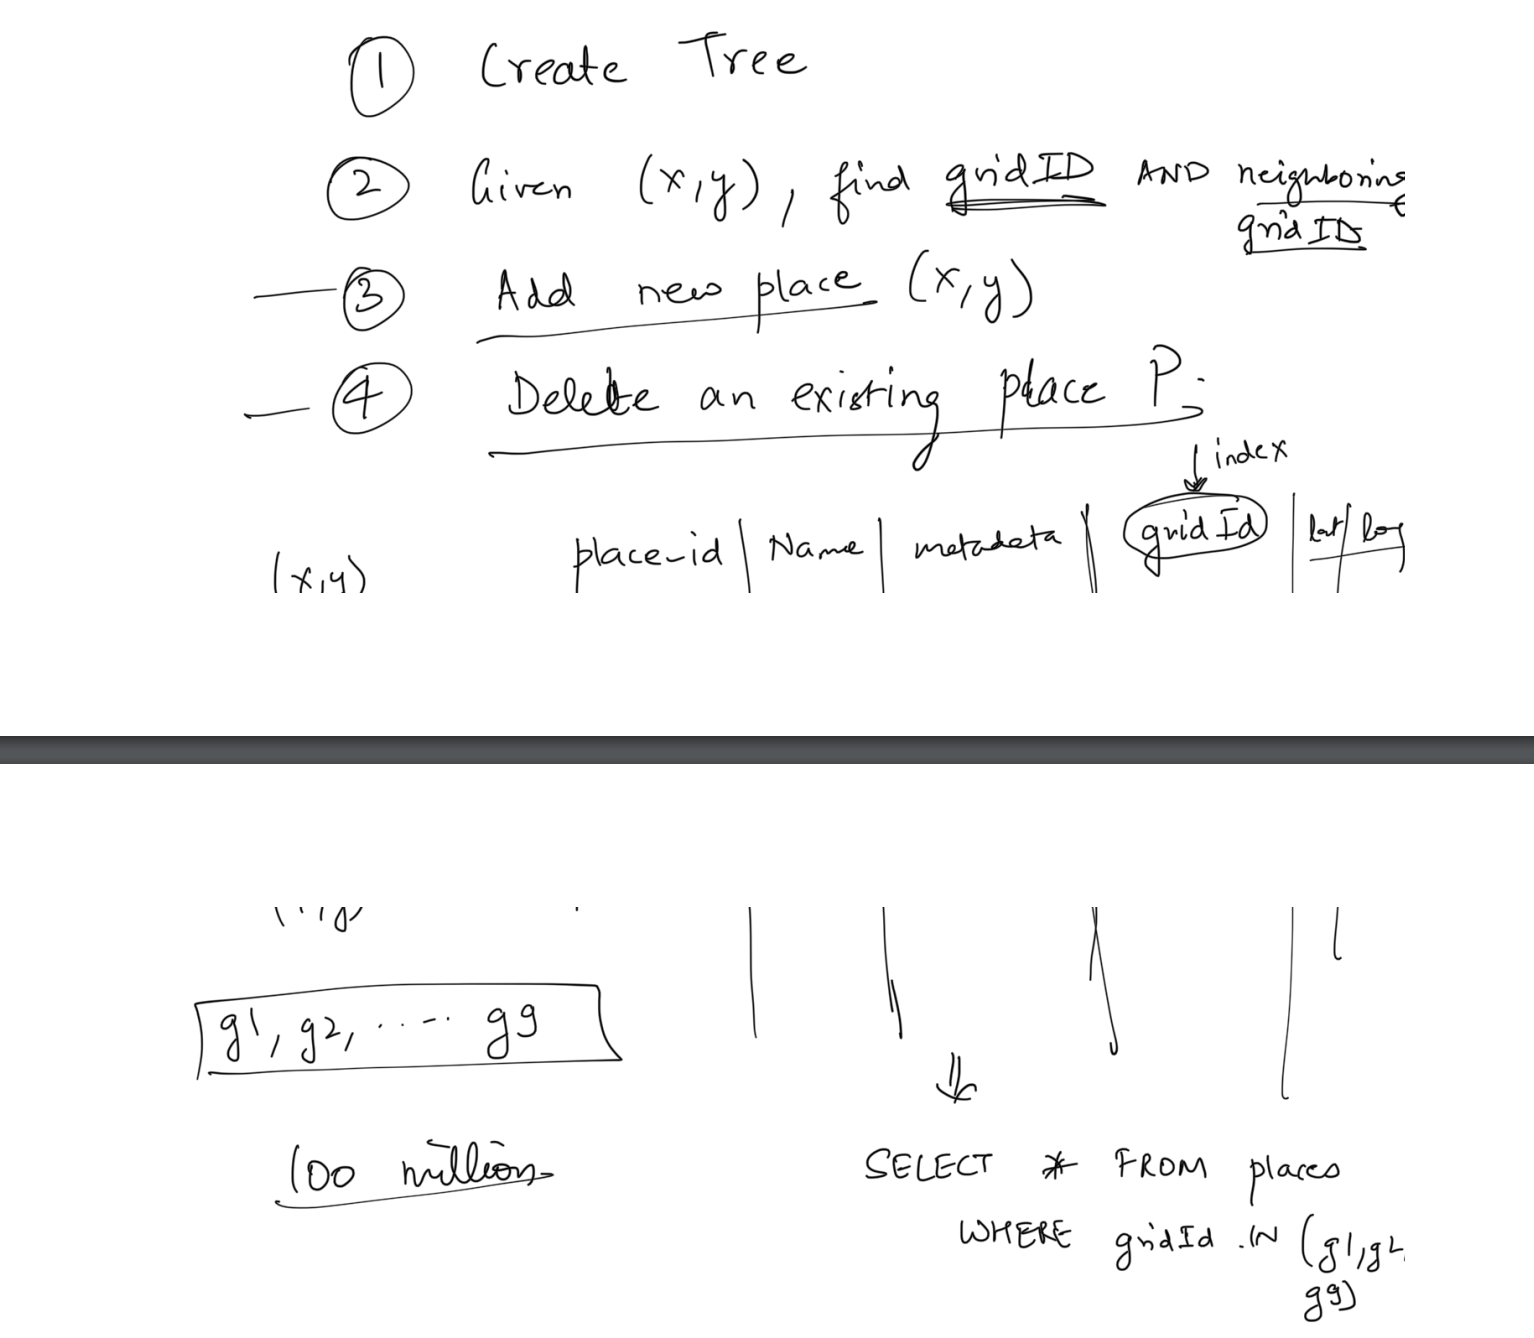 1 Create Tree
2 Given (x,y), find gridID AND neighboring
gridID
3 Add new place (x,y)
4 Delete an existing place P;
index
(x,y) place_id | Name | metadata | gridId | lat/long
g1, g2, ..... g9
100 million
SELECT * FROM places
WHERE gridId IN (g1,g2,
g9)